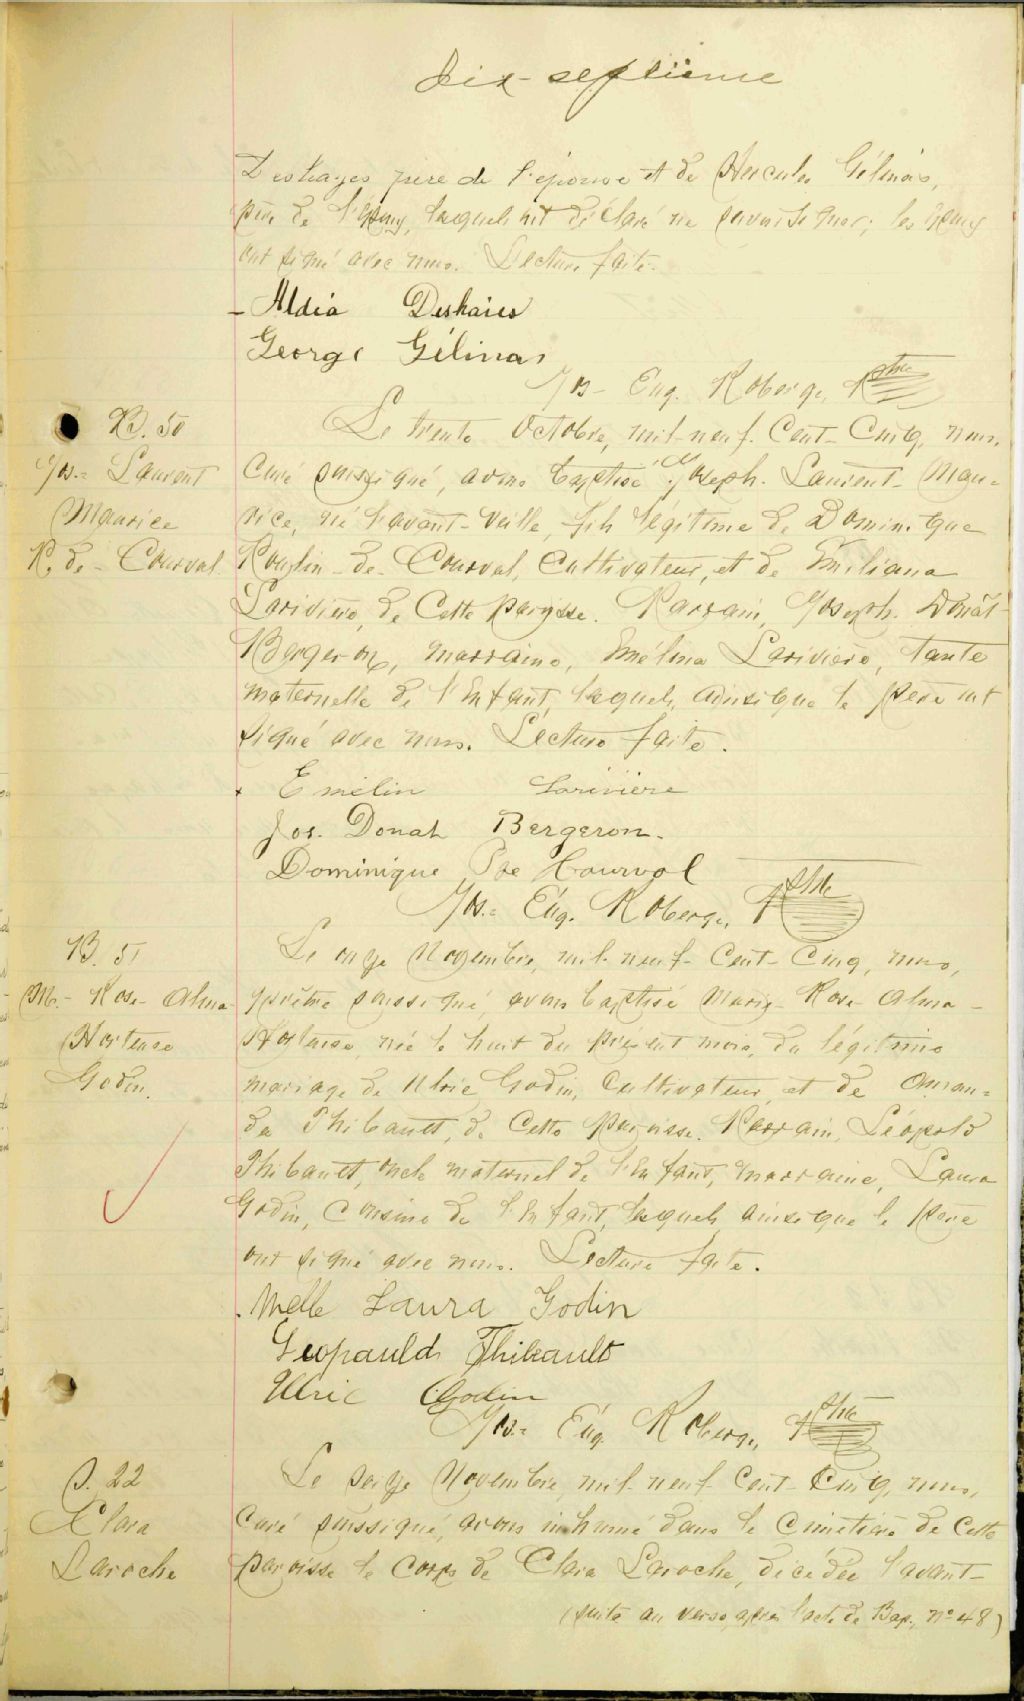 dix-septième
Deshayes père de l'épouse et de Hercules Gélinas,
père de l'époux, lesquels ont déclaré ne savoir signer; les époux
ont signé avec nous. Lecture faite.
Aldia Deshaies
George Gélinas
Jos- Eug. Roberge, Ptre
B. 50
Jos.= Laurent
Maurice
P. de - Courval
Le trente Octobre, mil-neuf-Cent-Cinq, nous,
Curé soussigné, avons baptisé Joseph-Laurent-Mau=
rice, né l'avant-veille, fils légitime de Dominique
Poulin-de-Courval, Cultivateur, et de Émiliana
Larivière, de Cette paroisse. Parrain, Joseph-Donat-
Bergeron, marraine, Emélina Larivière, tante
maternelle de l'Enfant, lesquels, ainsi que le père ont
signé avec nous. Lecture faite.
Emélin Larivière
Jos. Donat Bergeron.
Dominique Courval
Jos.= Eug. Roberge, Ptre
B. 51
M.- Rose-Alma
Hortense
Godin.
Le onze Novembre, mil-neuf-Cent-Cinq, nous,
prêtre soussigné, avons baptisé Marie-Rose-Alma-
Hortense, née le huit du présent mois, du légitime
mariage de Ulric Godin, Cultivateur, et de Aman=
da Thibault, de Cette paroisse. Parrain, Léopold
Thibault, oncle maternel de l'Enfant, marraine, Laura
Godin, Cousine de l'Enfant, lesquels, ainsi que le père
ont signé avec nous. Lecture faite.
Melle Laura Godin
Leopauld Thibault
Ulric Godin
Jos.= Eug. Roberge, Ptre
S. 22
Clara
Laroche
Le seize Novembre, mil-neuf-Cent-Cinq, nous,
Curé soussigné, avons inhumé dans le Cimetière de Cette
paroisse le Corps de Clara Laroche, décédée l'avant-
(suite au verso, après l'acte de Bap., no 48)